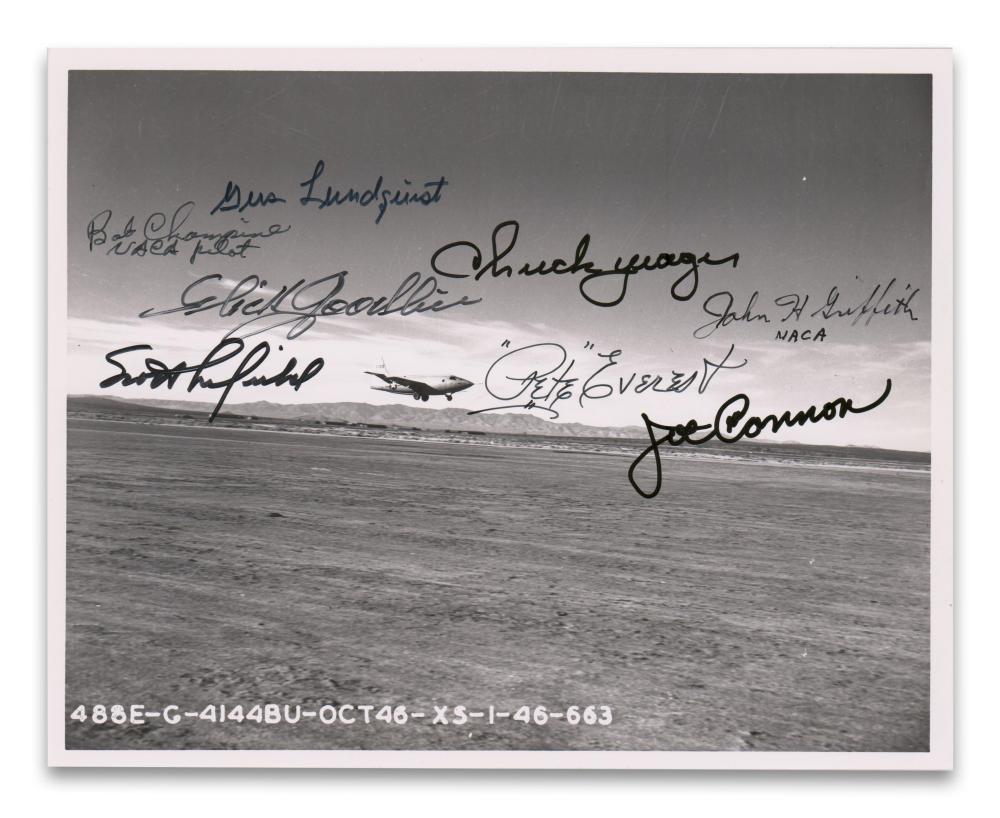 Gus Lundquist
Bob Champine
NACA pilot
Chuck Yeager
Slick Goodlin
John H Griffith
NACA
Scott Crossfield
"Pete" Everest
Joe Cannon
488E-G-4144BU-OCT46-XS-1-46-663